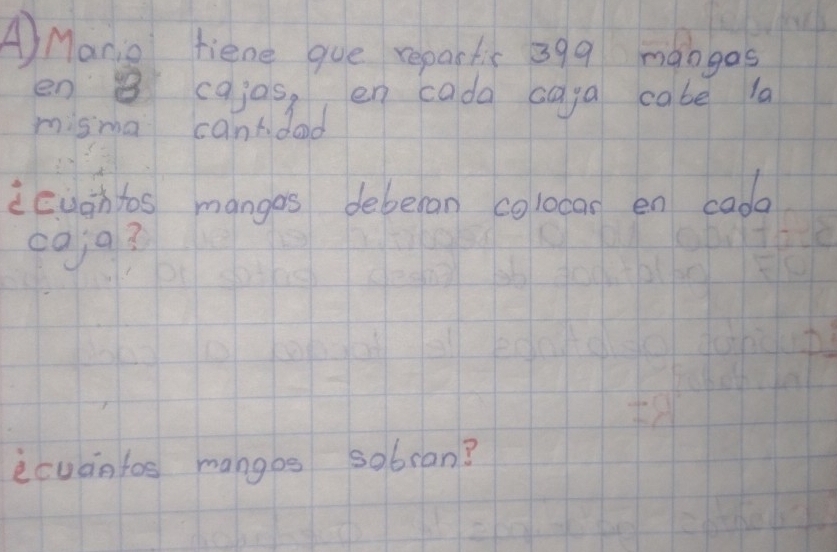 A) Mario tiene que repartir 399 mangos
en 8 cajas, en cada caja cabe la
misma cantidad
¿cuántos mangos deberan colocar en cada
caja?
¿cuántos mangos sobran?